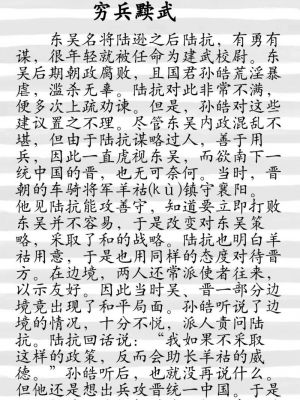 穷兵黩武
东吴名将陆逊之后陆抗，有勇有
谋，很年轻就被任命为建武校尉。东
吴后期朝政腐败，且国君孙皓荒淫暴
虐，滥杀无辜。陆抗对此非常不满，
便多次上疏劝谏。但是，孙皓对这些
建议置之不理。尽管东吴内政混乱不
堪，但由于陆抗谋略过人，善于用
兵，因此一直虎视东吴，而欲南下一
统中国的晋，也无可奈何。当时，晋
朝的车骑将军羊祜(kù)镇守襄阳。
他见陆抗能攻善守，知道要立即打败
东吴并不容易，于是改变对东吴策
略，采取了和的战略。陆抗也明白羊
祜用意，于是也用同样的态度对待晋
方。在边境，两人还常派使者往来，
以示友好。因此当时吴、晋一部分边
境竟出现了和平局面。孙皓听说了边
境的情况，十分不悦，派人责问陆
抗。陆抗回话说：“我如果不采取
这样的政策，反而会助长羊祜的威
德。”孙皓听后，也就没再说什么。
但他还是想出兵攻晋统一中国。于是